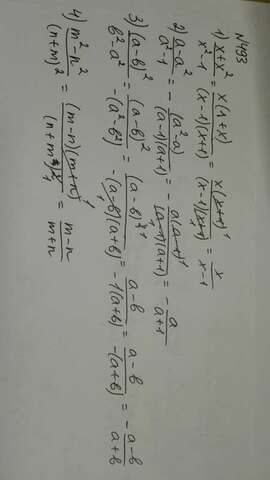 №493
1) x+x²/x²-1 = x(1+x)/(x-1)(x+1) = x(x+1)¹/(x-1)(x+1)₁ = x/x-1
2) a-a²/a²-1 = -(a²-a)/(a-1)(a+1) = -a(a-1)¹/(a-1)(a+1) = -a/a+1
3) (a-b)²/b²-a² = (a-b)²/-(a²-b²) = (a-b)²¹/-(a-b)(a+b) = a-b/-1(a+b) = a-b/-(a+b) = -a-b/a+b
4) m²-n²/(n+m)² = (m-n)(m+n)¹/(n+m)²₁ = m-n/m+n